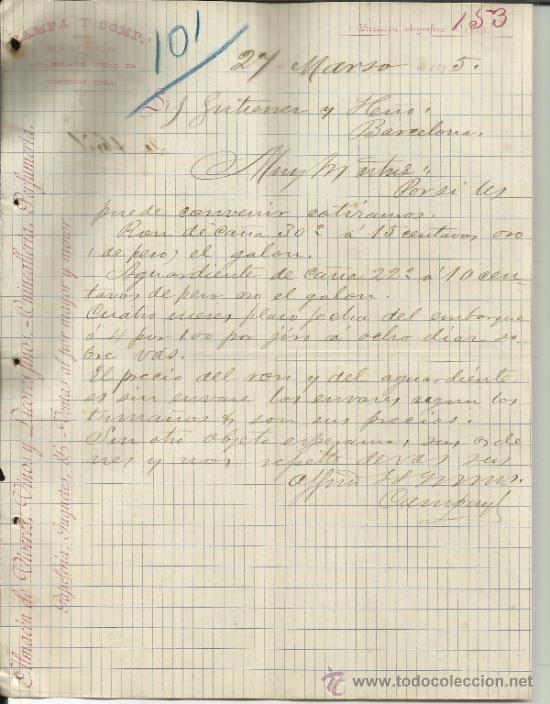 CAMPA Y COMP.ª
Dirección telegráfica
153
101
27 Marzo de 1895.
Gutierrez y Hno.
Barcelona.
Muy Sres. ntros:
Por si les
puede convenir cotizamos.
Ron de caña 30º á 15 centavos oro
(de peso) el galon.
Aguardiente de caña 22º á 10 cen-
tavos de peso oro el galon.
Cuatro meses plazo fecha del embarque
ó 4 por 100 por jiro á ocho dias so-
bre vds.
El precio del ron y del aguardiente
es sin envase los envases segun los
tamaños & son sus precios.
Sin otro objeto esperamos sus orde
nes y nos de vds sus
affmos S S
Campa y C
Almacén de Víveres, Vinos y Licores finos.-Quincallería, Perfumería,
Papelería, Juguetes, &.-Ventas al por mayor y menor.
todocoleccion
www.todocoleccion.net